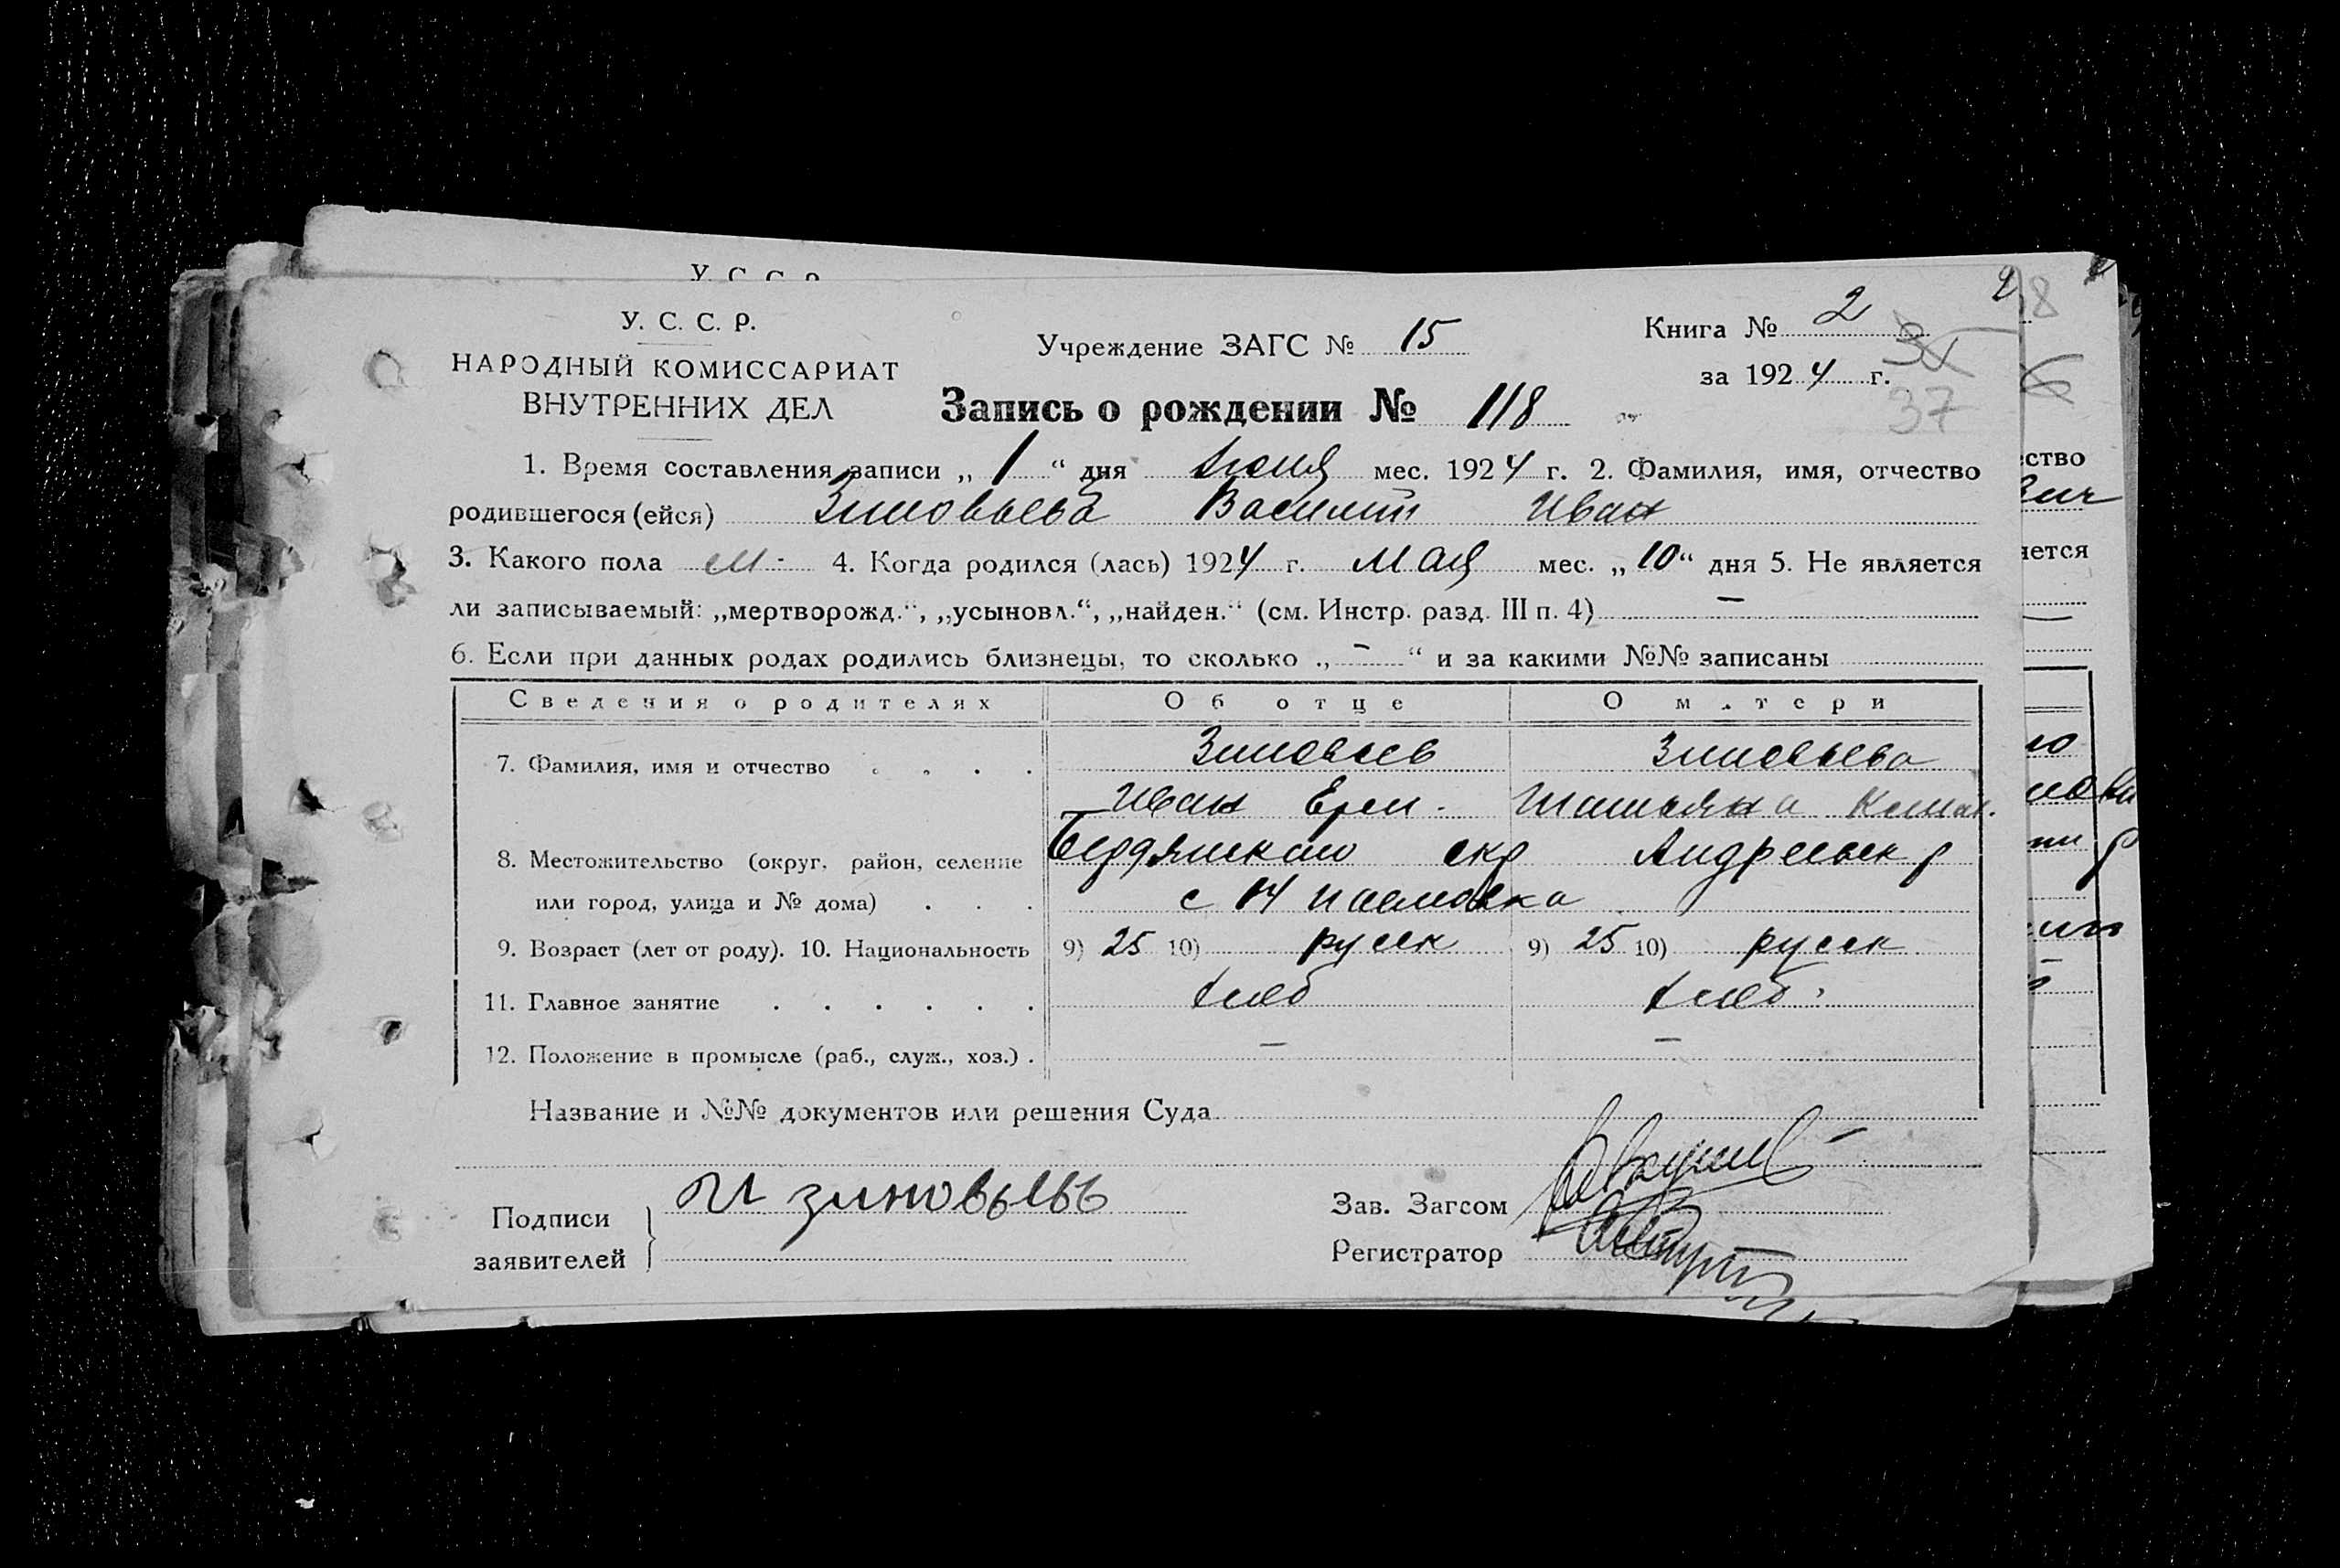 У. С. С. Р.
У. С. С. Р.
НАРОДНЫЙ КОМИССАРИАТ
ВНУТРЕННИХ ДЕЛ
Учреждение ЗАГС № 15
Книга № 2
за 1924 г.
37
Запись о рождении № 118
1. Время составления записи „ 1 “ дня июня мес. 1924 г. 2. Фамилия, имя, отчество
родившегося (ейся) Зиновьева Василий Иван
3. Какого пола м- 4. Когда родился (лась) 1924 г. мая мес. „ 10 “ дня 5. Не является
ли записываемый: „мертворожд.“, „усыновл.“, „найден.“ (см. Инстр. разд. III п. 4) —
6. Если при данных родах родились близнецы, то сколько „ – “ и за какими №№ записаны
Сведения о родителях Об отце О матери
7. Фамилия, имя и отчество Зиновьев Зиновьева
Иван Ерем. Татьяна
8. Местожительство (округ, район, селение Бердянского окр Андреевск р
или город, улица и № дома) с
9. Возраст (лет от роду). 10. Национальность 9) 25 10) русск 9) 25 10) русск
11. Главное занятие хлеб хлеб
12. Положение в промысле (раб., служ., хоз.) — —
Название и №№ документов или решения Суда
Подписи
заявителей
И Зиновьевъ
Зав. Загсом
Регистратор